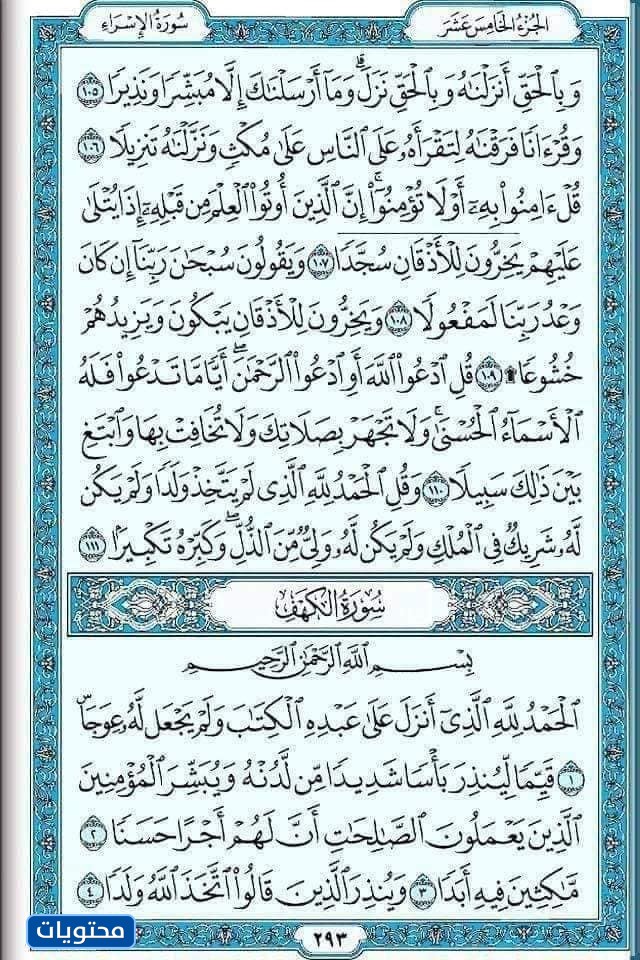 الجُزءُ الخَامِس عَشَر
سُورَةُ الإِسْرَاء
وَبِالْحَقِّ أَنزَلْنَاهُ وَبِالْحَقِّ نَزَلَ ۗ وَمَا أَرْسَلْنَاكَ إِلَّا مُبَشِّرًا وَنَذِيرًا ١٠٥
وَقُرْءَانًا فَرَقْنَاهُ لِتَقْرَأَهُ عَلَى النَّاسِ عَلَىٰ مُكْثٍ وَنَزَّلْنَاهُ تَنزِيلًا ١٠٦
قُلْ ءَامِنُوا بِهِ أَوْ لَا تُؤْمِنُوا ۚ إِنَّ الَّذِينَ أُوتُوا الْعِلْمَ مِن قَبْلِهِ إِذَا يُتْلَىٰ
عَلَيْهِمْ يَخِرُّونَ لِلْأَذْقَانِ سُجَّدًا ١٠٧ وَيَقُولُونَ سُبْحَانَ رَبِّنَا إِن كَانَ
وَعْدُ رَبِّنَا لَمَفْعُولًا ١٠٨ وَيَخِرُّونَ لِلْأَذْقَانِ يَبْكُونَ وَيَزِيدُهُمْ
خُشُوعًا ۩ ١٠٩ قُلِ ادْعُوا اللَّهَ أَوِ ادْعُوا الرَّحْمَٰنَ ۖ أَيًّا مَّا تَدْعُوا فَلَهُ
الْأَسْمَاءُ الْحُسْنَىٰ ۚ وَلَا تَجْهَرْ بِصَلَاتِكَ وَلَا تُخَافِتْ بِهَا وَابْتَغِ
بَيْنَ ذَٰلِكَ سَبِيلًا ١١٠ وَقُلِ الْحَمْدُ لِلَّهِ الَّذِي لَمْ يَتَّخِذْ وَلَدًا وَلَمْ يَكُن
لَّهُ شَرِيكٌ فِي الْمُلْكِ وَلَمْ يَكُن لَّهُ وَلِيٌّ مِّنَ الذُّلِّ ۖ وَكَبِّرْهُ تَكْبِيرًا ١١١
سُورَةُ الكَهْفِ
بِسْمِ اللَّهِ الرَّحْمَٰنِ الرَّحِيمِ
الْحَمْدُ لِلَّهِ الَّذِي أَنزَلَ عَلَىٰ عَبْدِهِ الْكِتَابَ وَلَمْ يَجْعَل لَّهُ عِوَجًا ۜ
١ قَيِّمًا لِّيُنذِرَ بَأْسًا شَدِيدًا مِّن لَّدُنْهُ وَيُبَشِّرَ الْمُؤْمِنِينَ
الَّذِينَ يَعْمَلُونَ الصَّالِحَاتِ أَنَّ لَهُمْ أَجْرًا حَسَنًا ٢
مَّاكِثِينَ فِيهِ أَبَدًا ٣ وَيُنذِرَ الَّذِينَ قَالُوا اتَّخَذَ اللَّهُ وَلَدًا ٤
محتويات
٢٩٣